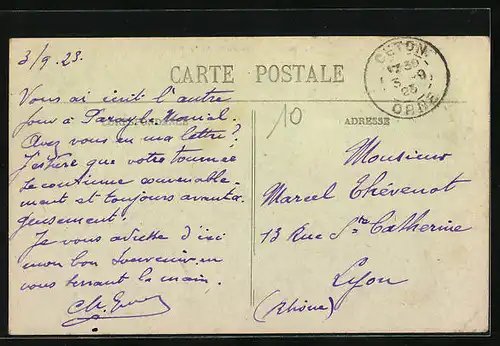 3/9.23.
CARTE POSTALE
CETON
ORNE
Vous ai écrit l'autre
jour à Paray-le-Monial.
Avez vous eu ma lettre?
J'espère que votre tournée
se continue convenable-
ment et toujours avanta-
geusement.
Je vous adresse d'ici
mon bon souvenir en
vous serrant la main.
10
ADRESSE
Monsieur
Marcel Thévenot
13 Rue Ste Catherine
Lyon
(Rhône)